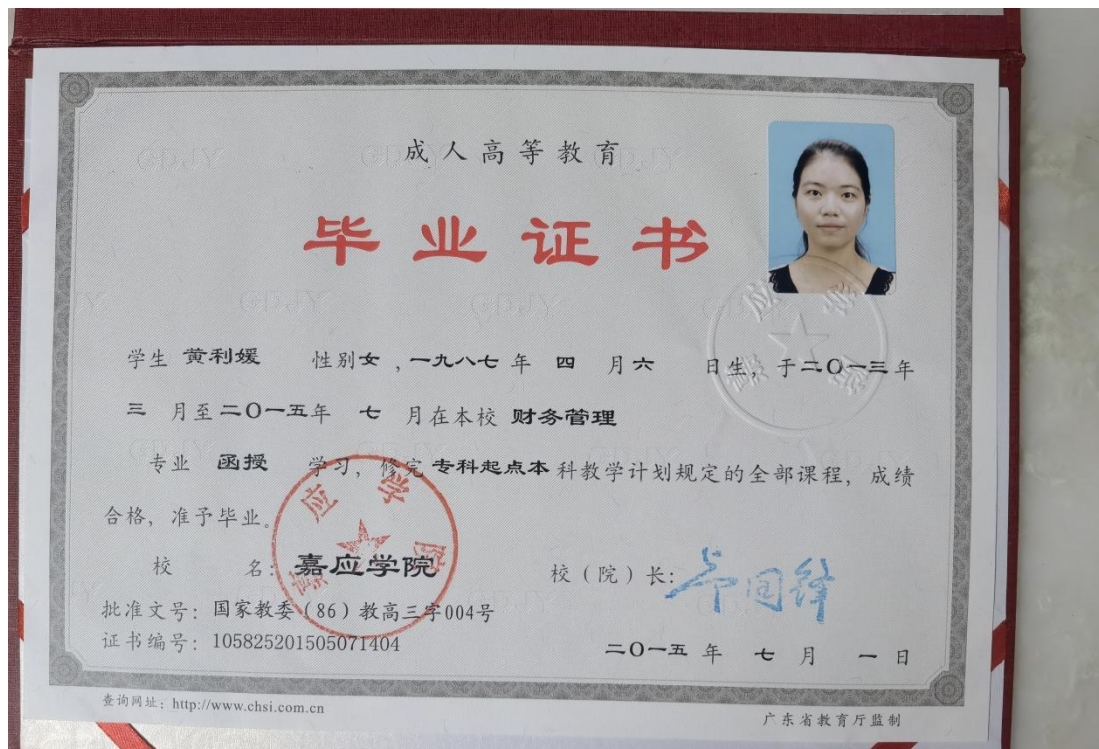 成人高等教育
毕业证书
学生 黄利媛 性别女，一九八七年 四 月六 日生，于二〇一三年
三 月至二〇一五年 七 月在本校 财务管理
专业 函授 学习，修完专科起点本科教学计划规定的全部课程，成绩
合格，准予毕业。
校 名：嘉应学院
校（院）长：
批准文号：国家教委（86）教高三字004号
证书编号：105825201505071404
二〇一五 年 七 月 一 日
查询网址：http://www.chsi.com.cn
广东省教育厅监制
嘉应学院